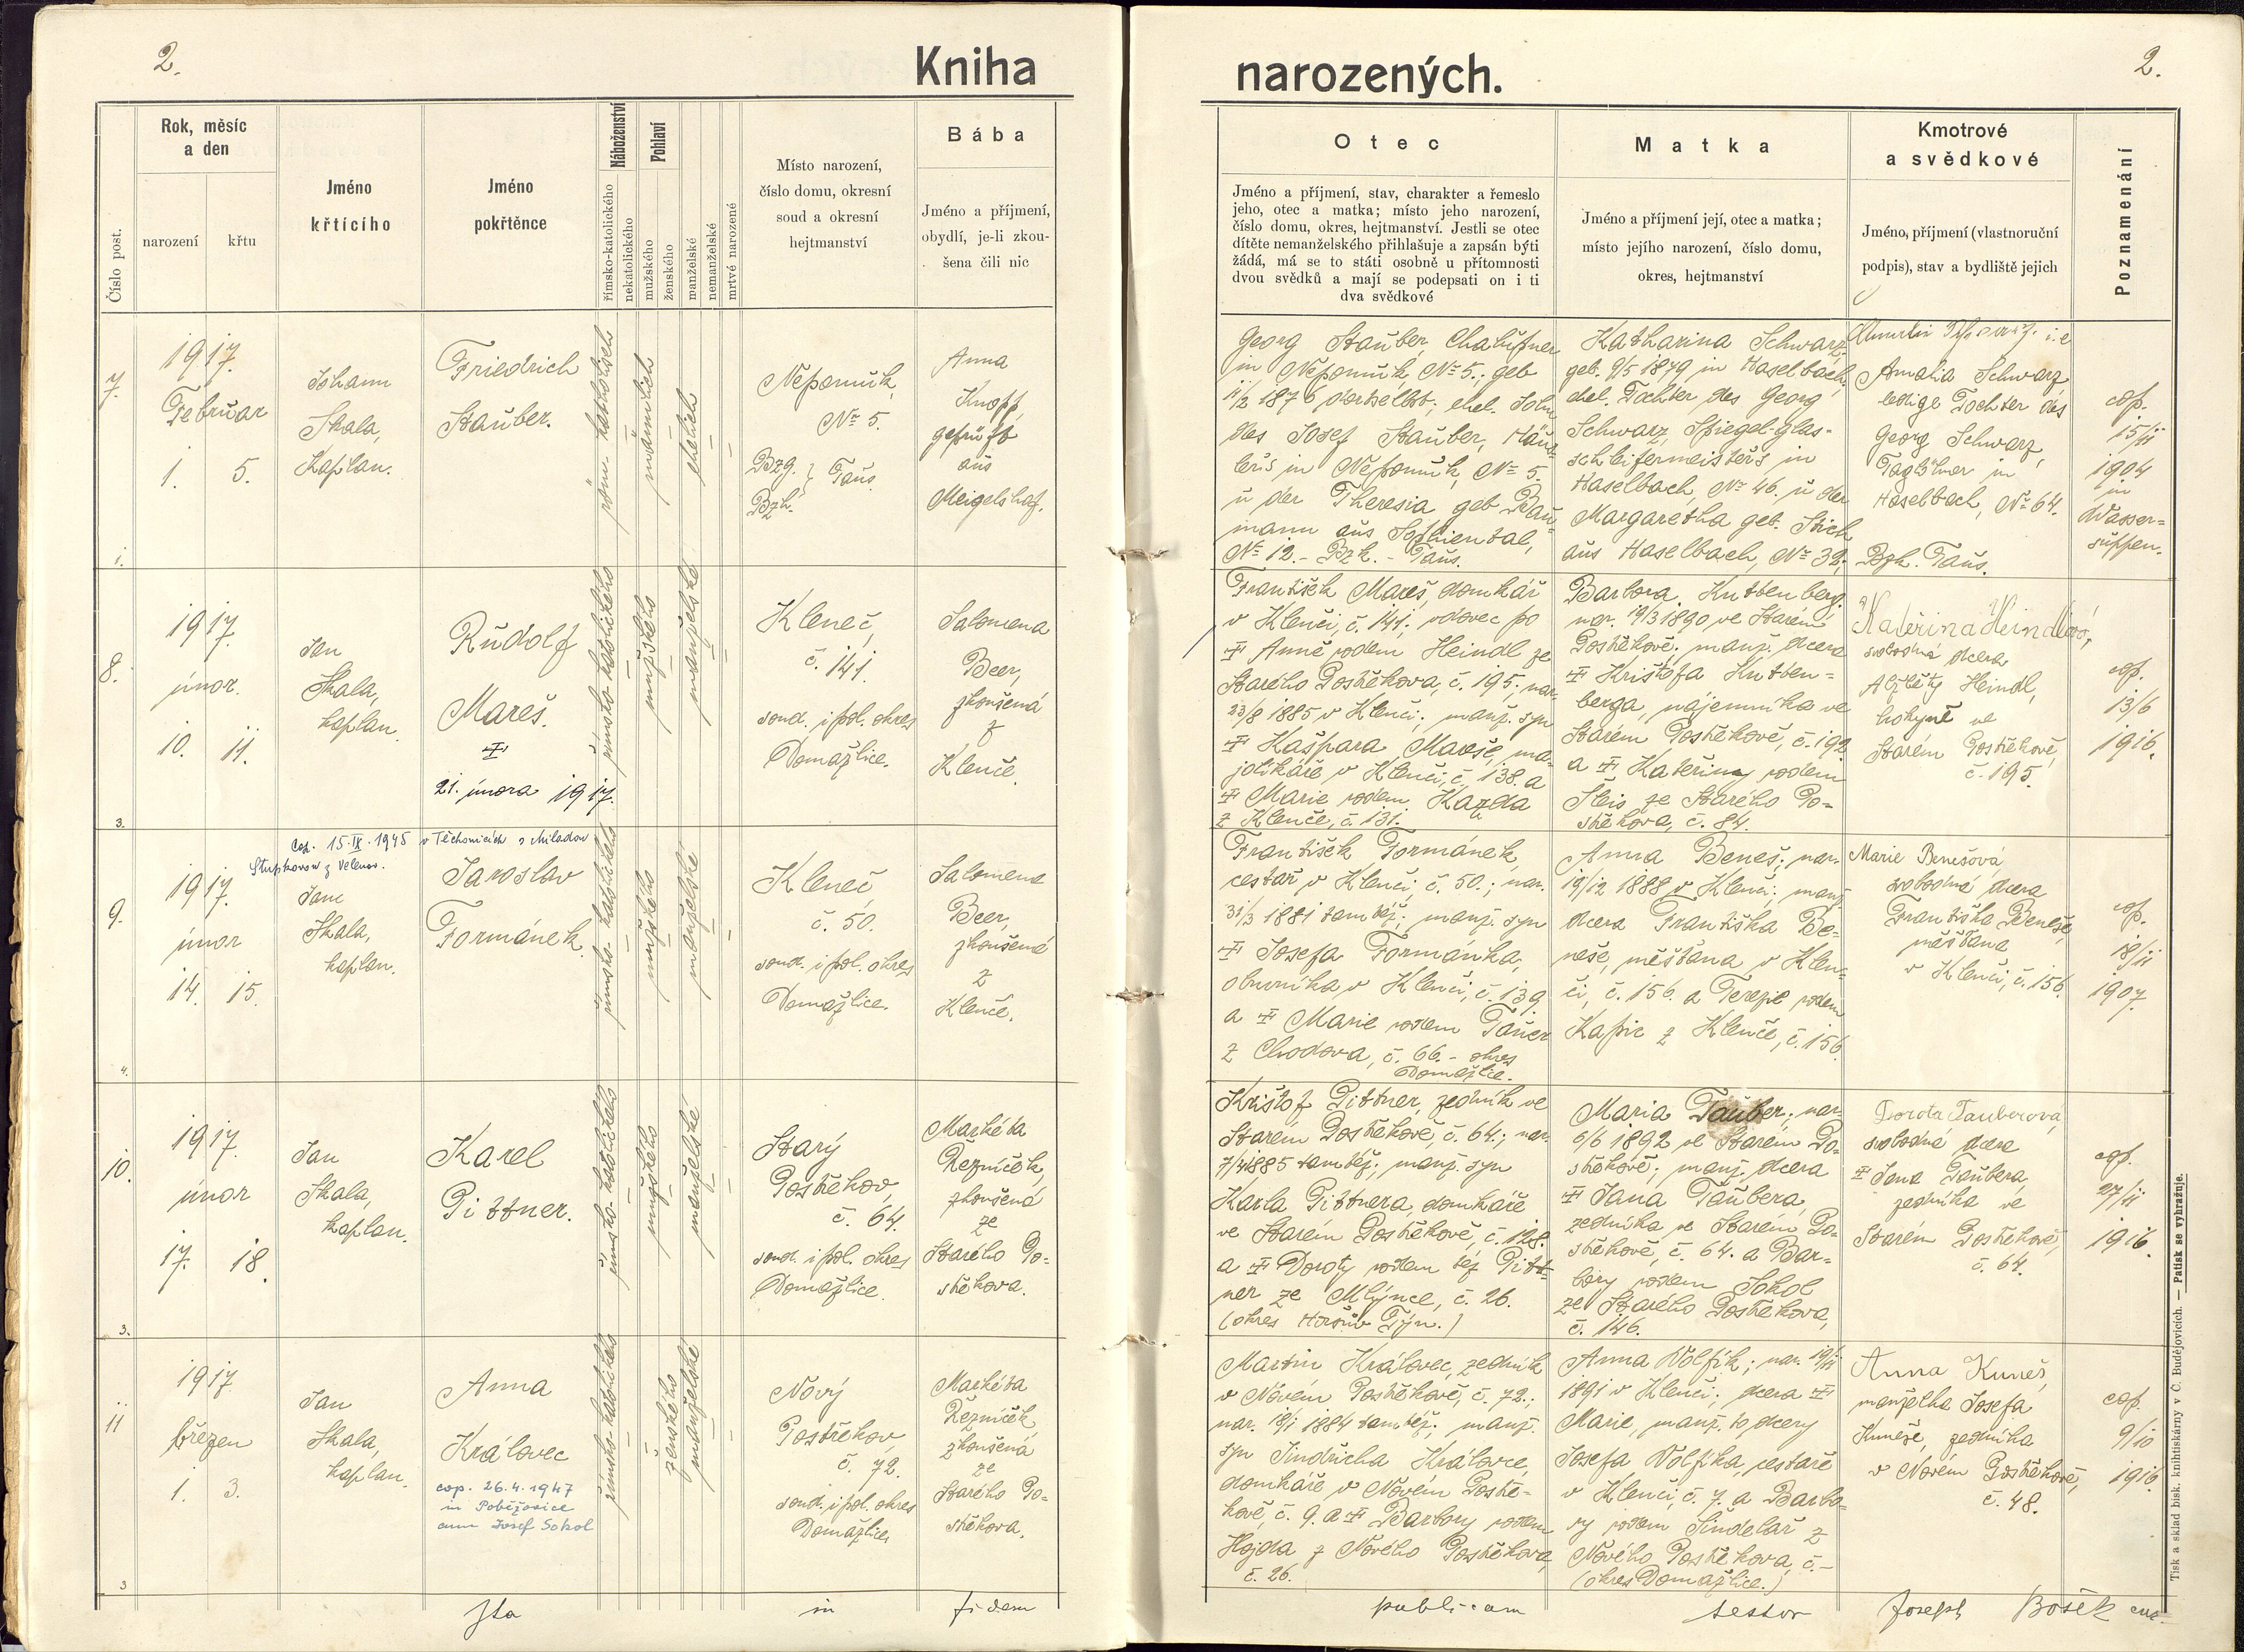 2.
Kniha
narozených.
2.
Číslo post.
Rok, měsíc
a den
narození
křtu
Jméno
křtícího
Jméno
pokřtěnce
Náboženství
římsko-katolického
nekatolického
Pohlaví
mužského
ženského
manželské
nemanželské
mrtvé narozené
Místo narození,
číslo domu, okresní
soud a okresní
hejtmanství
Bába
Jméno a příjmení,
obydlí, je-li zkou-
šena čili nic
Otec
Jméno a příjmení, stav, charakter a řemeslo
jeho, otec a matka; místo jeho narození,
číslo domu, okres, hejtmanství. Jestli se otec
dítěte nemanželského přihlašuje a zapsán býti
žádá, má se to státi osobně u přítomnosti
dvou svědků a mají se podepsati on i ti
dva svědkové
Matka
Jméno a příjmení její, otec a matka;
místo jejího narození, číslo domu,
okres, hejtmanství
Kmotrové
a svědkové
Jméno, příjmení (vlastnoruční
podpis), stav a bydliště jejich
Poznamenání
7.
1917.
Februar
1. 5.
Johann
Skala,
Kaplan.
Friedrich
Stauber.
röm. katholisch
männlich
ehelich
Nepomuk,
No 5.
Bzg. } Taus
Bzh.
Anna
Knopf,
geprüft
aus
Meigelshof.
Georg Stauber, Chalupner
in Nepomuk No 5.; geb
11/2 1876 dortselbst; ehel. Sohn
des Josef Stauber, Häus-
lers in Nepomuk, No 5.
u der Theresia geb Bau-
mann aus Sophiental,
No 12. - Bzk. - Taus.
Katharina Schwarz,
geb. 9/5 1879 in Haselbach,
ehel. Tochter des Georg
Schwarz, Spiegel-Glas-
schleifermeisters in
Haselbach, No 46. u der
Margaretha geb. Stich
aus Haselbach, No 39.
Amalia Schwarz. i.e
Amalia Schwarz,
ledige Tochter des
Georg Schwarz,
Taglöhner in
Haselbach, No 64.
Bzh. Taus.
cop.
15/11
1904
in
Wasser-
suppen.
1.
8.
1917.
únor.
10. 11.
Jan
Skala,
kaplan.
Rudolf
Mareš.
21. února 1917.
římsko-katolického
mužského
manželské
Kleneč,
č. 141.
soud. i pol. okres
Domažlice.
Salomena
Beer,
zkoušená
z
Klenče.
František Mareš, domkář
v Klenči, č. 141; vdovec po
Anně rodem Heindl ze
Starého Postřekova, č. 195; nar.
23/8 1885 v Klenči; manž. syn
Kašpara Mareše, ma-
jolikáře v Klenči, č. 138. a
Marie rodem Kazda
z Klenče, č. 131.
Barbora Kuttenberg,
nar. 19/3 1890 ve Starém
Postřekově; manž. dcera
Krištofa Kutten-
berga, nájemníka ve
Starém Postřekově, č. 192
a Kateřiny rodem
Šleis ze Starého Po-
střekova, č. 84.
Kateřina Heindlová,
svobodná dcera
Alžběty Heindl,
hokyně ve
Starém Postřekově,
č. 195.
cop.
13/6
1916.
3.
cop. 15.IX.1945 v Těchonicích s Miladou
Stupkovou z Velenov.
9.
1917.
únor
14. 15.
Jan
Skala,
kaplan.
Jaroslav
Formánek.
římsko-katolického
mužského
manželské
Kleneč
č. 50.
soud. i pol. okres
Domažlice.
Salomena
Beer,
zkoušená
z
Klenče.
František Formánek,
cestář v Klenči č. 50.; nar.
31/3 1881 tamtéž; manž. syn
Josefa Formánka,
obuvníka v Klenči, č. 139
a Marie rodem Tauer
z Chodova, č. 66. - okres
Domažlice.
Anna Beneš; nar.
19/12 1888 v Klenči; manž.
dcera Františka Be-
neše, měšťana v Klen-
či, č. 156. a Terezie rodem
Kapic z Klenče, č. 156.
Marie Benešová,
svobodná dcera
Františka Beneše,
měšťana
v Klenči, č. 156.
cop.
18/11
1907.
4.
10.
1917.
únor
17. 18.
Jan
Skala,
kaplan.
Karel
Pittner.
římsko-katolického
mužského
manželské
Starý
Postřekov,
č. 64.
soud. i pol. okres
Domažlice.
Markéta
Řezníček,
zkoušená
ze
Starého Po-
střekova.
Krištof Pittner, zedník ve
Starém Postřekově, č. 64.; nar.
7/4 1885 tamtéž; manž. syn
Karla Pittnera, domkáře
ve Starém Postřekově, č. 128.
a Doroty rodem též Pitt-
ner ze Mlýnce, č. 26.
(okres Horšův Týn.)
Maria Tauber; nar.
6/6 1892 ve Starém Po-
střekově; manž. dcera
Jana Taubera,
zedníka ve Starém Po-
střekově, č. 64. a Bar-
bory rodem Sokol
ze Starého Postřekova,
č. 146.
Dorota Tauberová,
svobodná dcera
Jana Taubera,
zedníka ve
Starém Postřekově,
č. 64.
cop.
27/11
1916.
3.
11
1917
březen
1. 3.
Jan
Skala,
kaplan.
Anna
Královec
cop. 26.4.1947
in Poběžovice
cum Josef Sokol
římsko-katolického
ženského
manželské
Nový
Postřekov,
č. 72.
soud. i pol. okres
Domažlice
Markéta
Řezníček,
zkoušená
ze
Starého Po-
střekova.
Martin Královec, zedník
v Novém Postřekově, č. 72.;
nar. 18/1 1884 tamtéž; manž.
syn Jindřicha Královce,
domkáře v Novém Postře-
kově, č. 9. a Barbory rodem
Hojda z Nového Postřekova,
č. 26.
Anna Volfík; nar. 19/11
1891 v Klenči; dcera
Marie, manž. to dcery
Josefa Volfíka, cestáře
v Klenči, č. 7. a Barbo-
ry rodem Šindelář z
Nového Postřekova, č.-
(okres Domažlice.)
Anna Kuneš,
manželka Josefa
Kuneše, zedníka
v Novém Postřekově,
č. 48.
cop.
9/10
1916.
3
Ita in fidem publicam testor Joseph Bošek
Tisk a sklad bisk. knihtiskárny v Č. Budějovicích. — Patisk se vyhražuje.